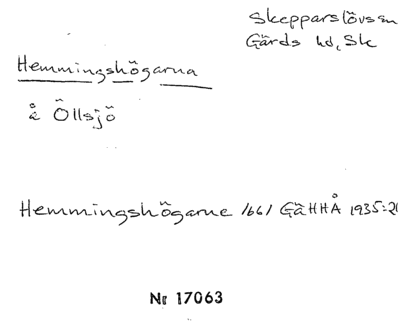 Skepparslövs sn
Gärds hd, Sk
Hemmingshögarna
å Öllsjö
Hemmingshögarne 1661 GäHHÅ 1935:20
Nr 17063